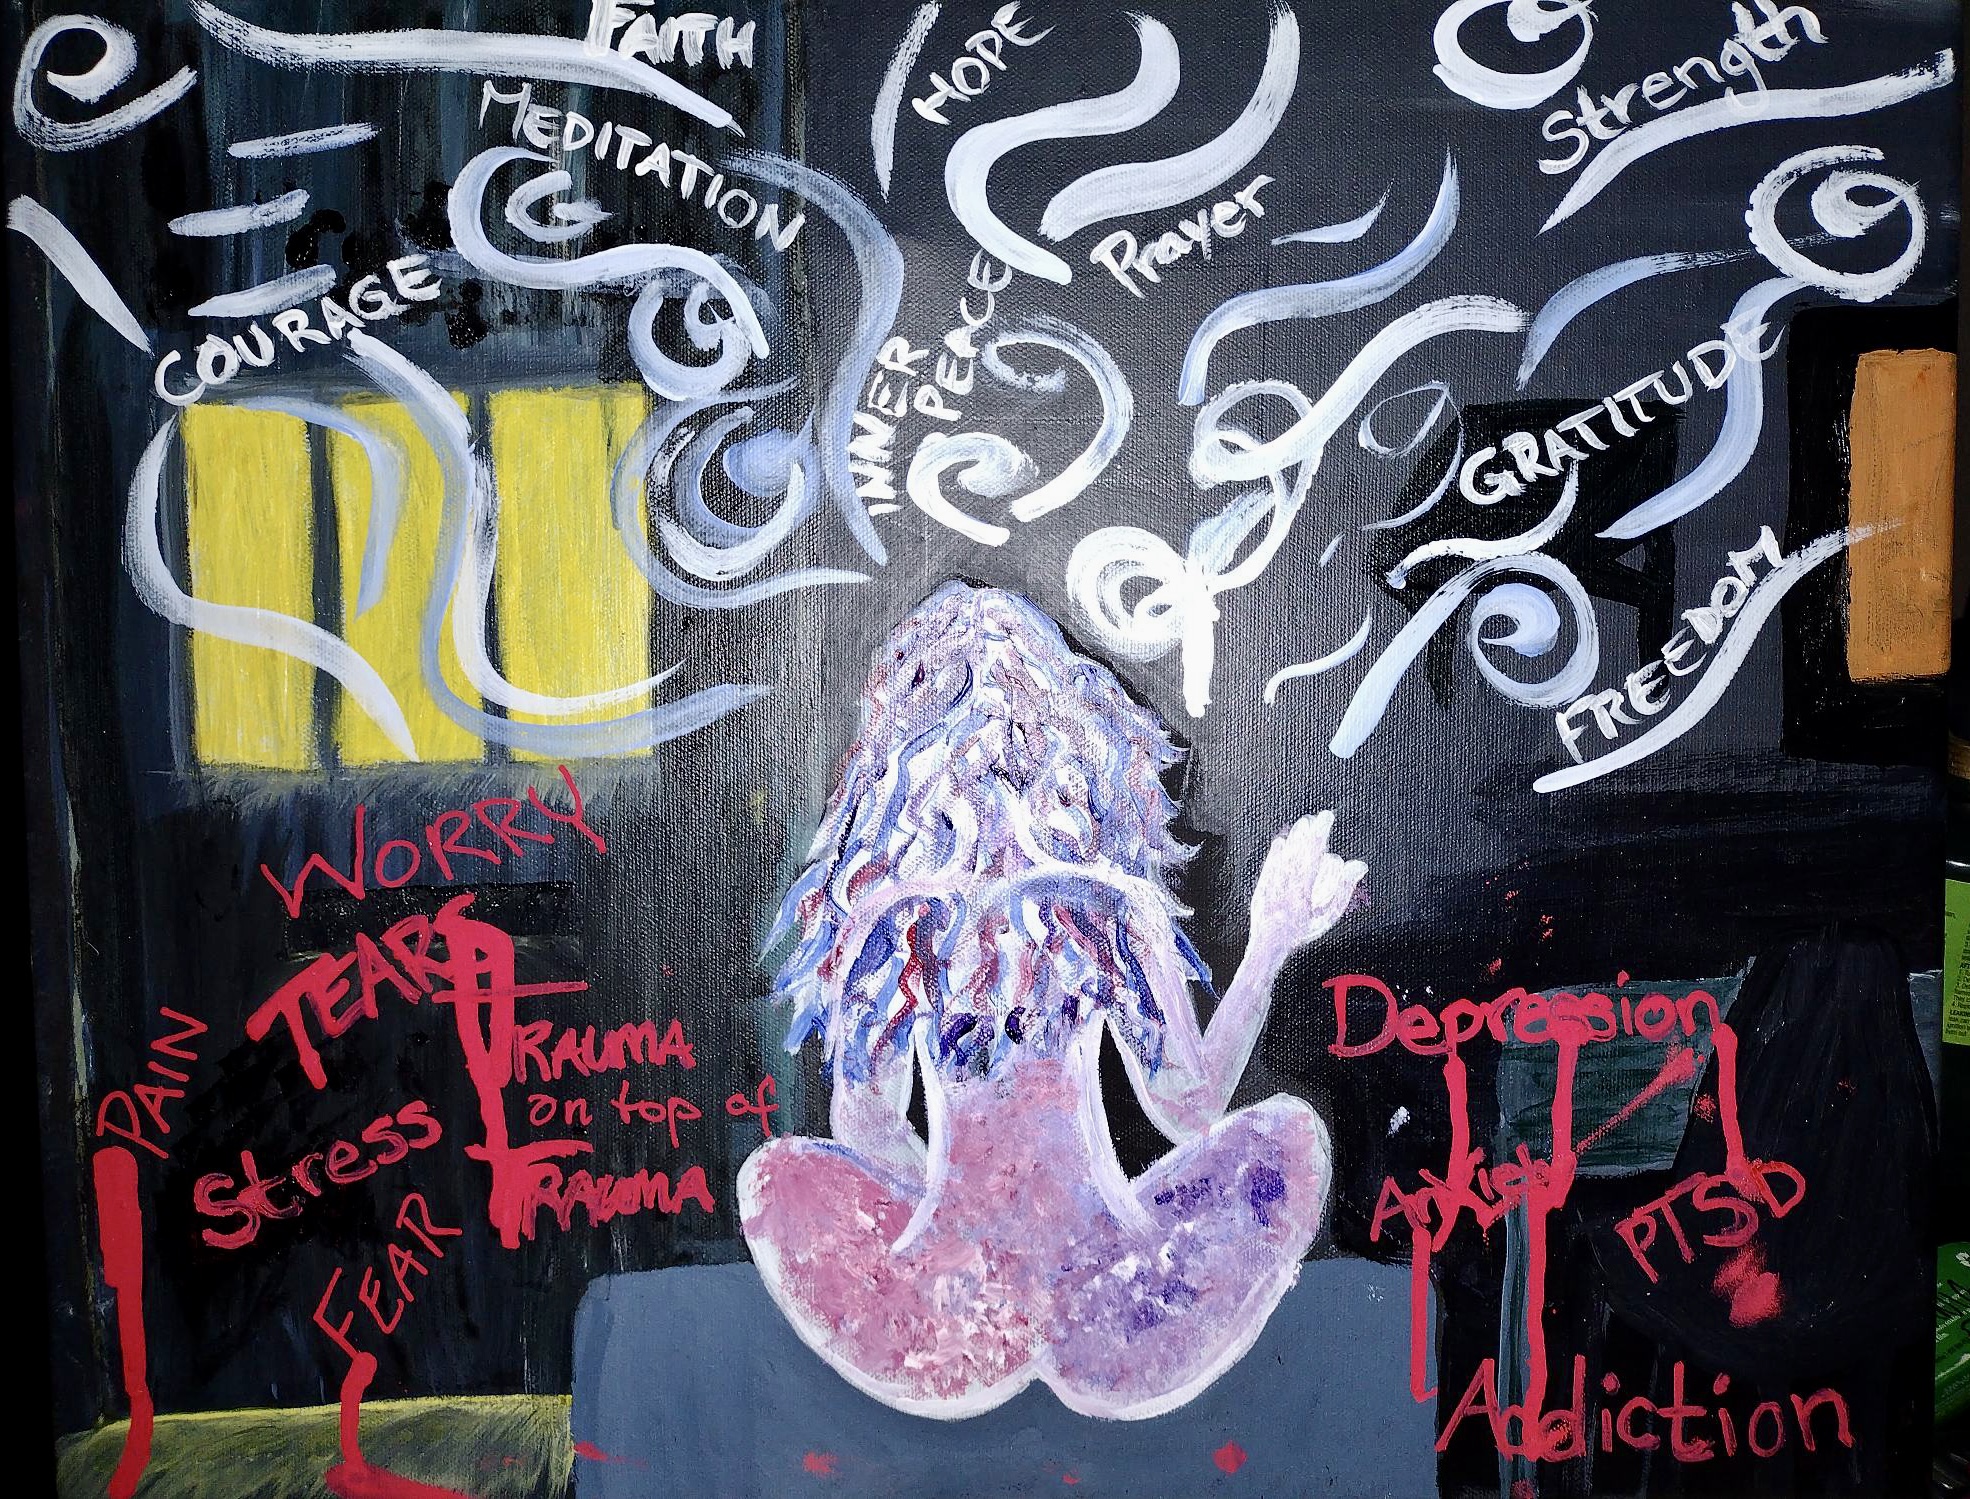 FAITH
HOPE
Strength
MEDITATION
Prayer
COURAGE
INNER
PEACE
GRATITUDE
FREEDOM
WORRY
TEARS
PAIN
TRAUMA
on top of
TRAUMA
Stress
FEAR
Depression
Anxiety
PTSD
Addiction